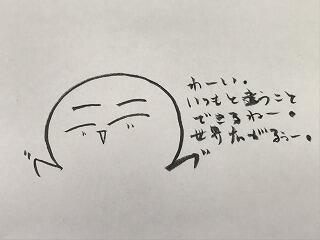 わーい。
いつもと違うこと
できるねー。
世界だいがるぅー。